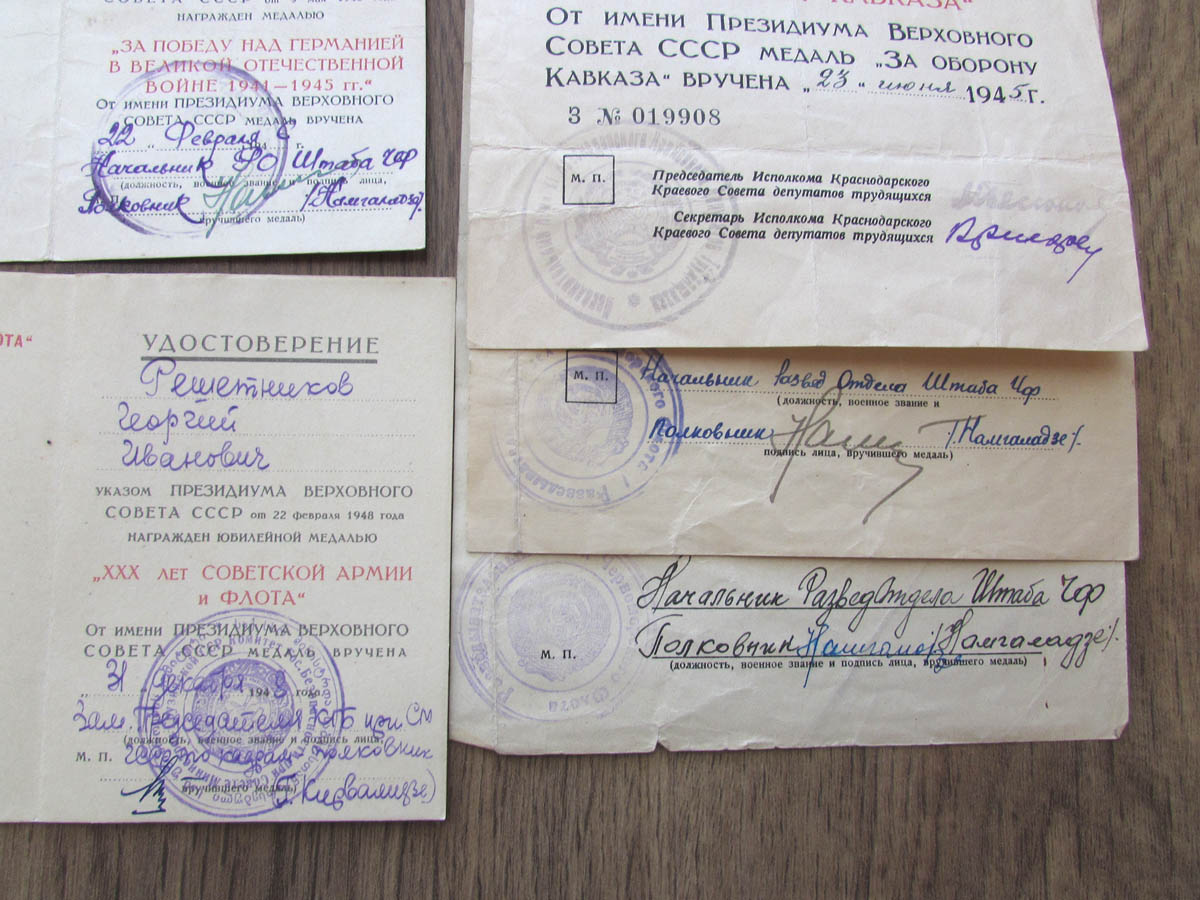 НАГРАЖДЕН МЕДАЛЬЮ
„ЗА ПОБЕДУ НАД ГЕРМАНИЕЙ
В ВЕЛИКОЙ ОТЕЧЕСТВЕННОЙ
ВОЙНЕ 1941—1945 гг.“
ОТ ИМЕНИ ПРЕЗИДИУМА ВЕРХОВНОГО
СОВЕТА СССР МЕДАЛЬ ВРУЧЕНА
22 „ Февраля 194 г.
Начальник РО Штаба ЧФ
(должность, военное звание подпись лица,
Полковник /Намгаладзе/
вручившего медаль)
КАВКАЗА“
ОТ ИМЕНИ ПРЕЗИДИУМА ВЕРХОВНОГО
СОВЕТА СССР МЕДАЛЬ „ЗА ОБОРОНУ
КАВКАЗА“ ВРУЧЕНА „23“ июня 1945г.
З № 019908
М. П.
Председатель Исполкома Краснодарского
Краевого Совета депутатов трудящихся
Секретарь Исполкома Краснодарского
Краевого Совета депутатов трудящихся
ОТА“
УДОСТОВЕРЕНИЕ
Решетников
Георгий
Иванович
УКАЗОМ ПРЕЗИДИУМА ВЕРХОВНОГО
СОВЕТА СССР от 22 февраля 1948 года
НАГРАЖДЕН ЮБИЛЕЙНОЙ МЕДАЛЬЮ
„XXX ЛЕТ СОВЕТСКОЙ АРМИИ
И ФЛОТА“
ОТ ИМЕНИ ПРЕЗИДИУМА ВЕРХОВНОГО
СОВЕТА СССР МЕДАЛЬ ВРУЧЕНА
„31 „ декабря 194 года
Зам. Председателя КГБ при СМ
(должность, военное звание и подпись лица,
М. П. полковник
вручившего медаль)
М. П.
Начальник развед Отдела Штаба ЧФ
(должность, военное звание и
Полковник /Намгаладзе/.
подпись лица, вручившего медаль)
Начальник РазведОтдела Штаба ЧФ
Полковник /Намгаладзе/.
М. П.
(должность, военное звание и подпись лица, вручившего медаль)